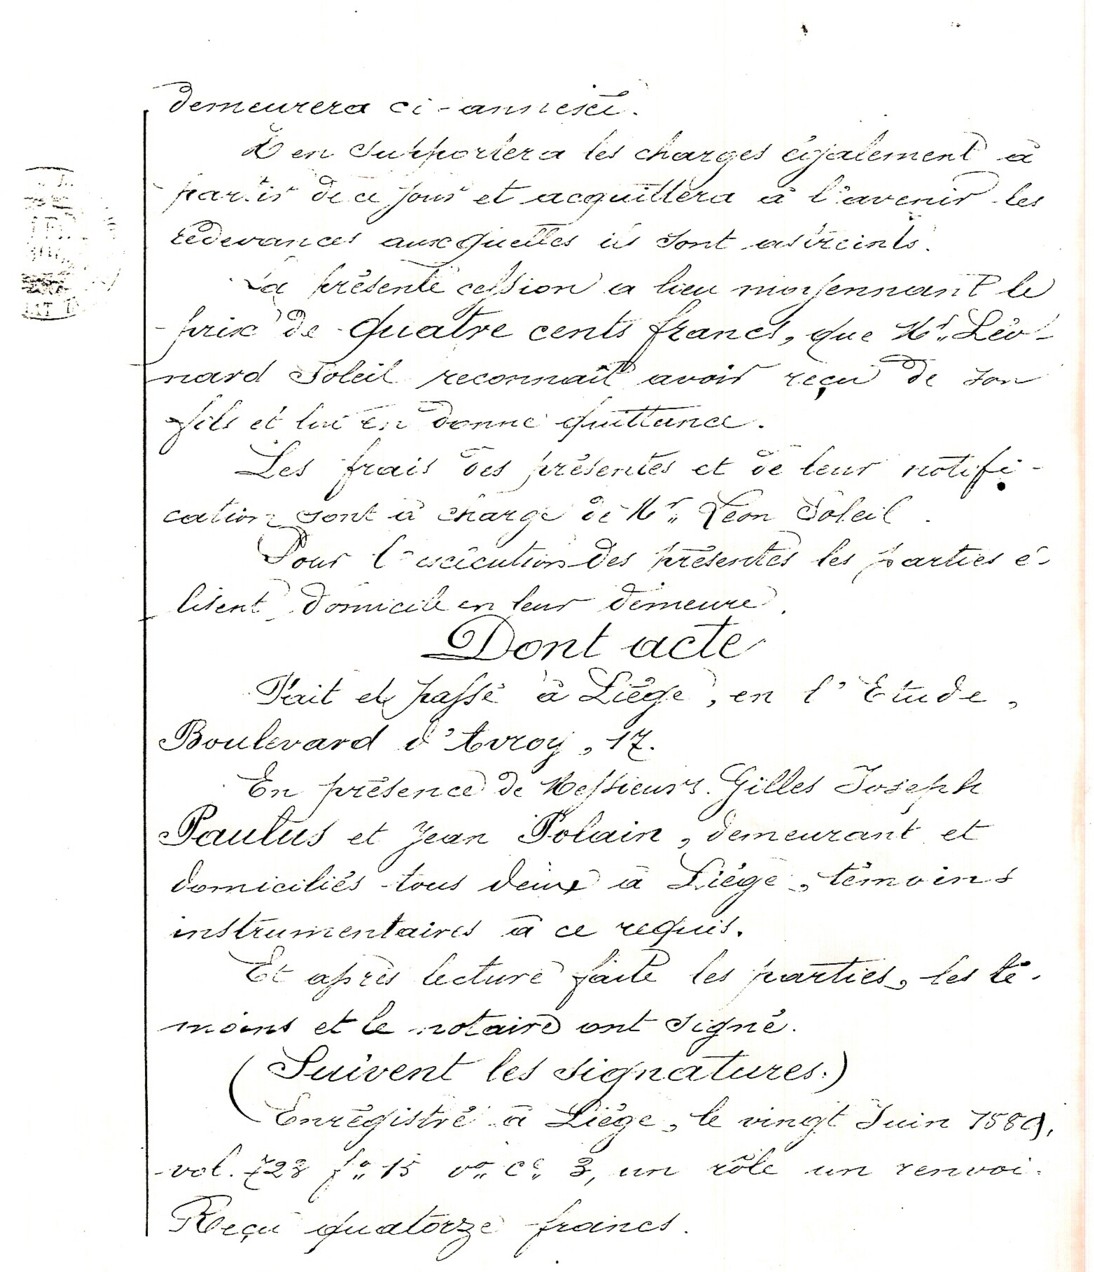 demeurera ci-annexé.
Il en supportera les charges également à
partir de ce jour et acquittera à l'avenir les
redevances auxquelles ils sont astreints.
La présente cession a lieu moyennant le
prix de quatre cents francs, que Mr. Léo-
nard Soleil reconnaît avoir reçu de son
fils et lui en donne quittance.
Les frais des présentes et de leur notifi-
cation sont à charge de Mr. Léon Soleil.
Pour l'exécution des présentes les parties é-
lisent domicile en leur demeure.
Dont acte
Fait et passé à Liège, en l'Etude,
Boulevard d'Avroy, 17.
En présence de Messieurs Gilles Joseph
Paulus et Jean Polain, demeurant et
domiciliés tous deux à Liège, témoins
instrumentaires à ce requis.
Et après lecture faite les parties, les té-
moins et le notaire ont signé.
(Suivent les signatures.)
Enregistré à Liège, le vingt Juin 1889,
vol. 723 fo 15 vo ce 3, un rôle un renvoi.
Reçu quatorze francs.